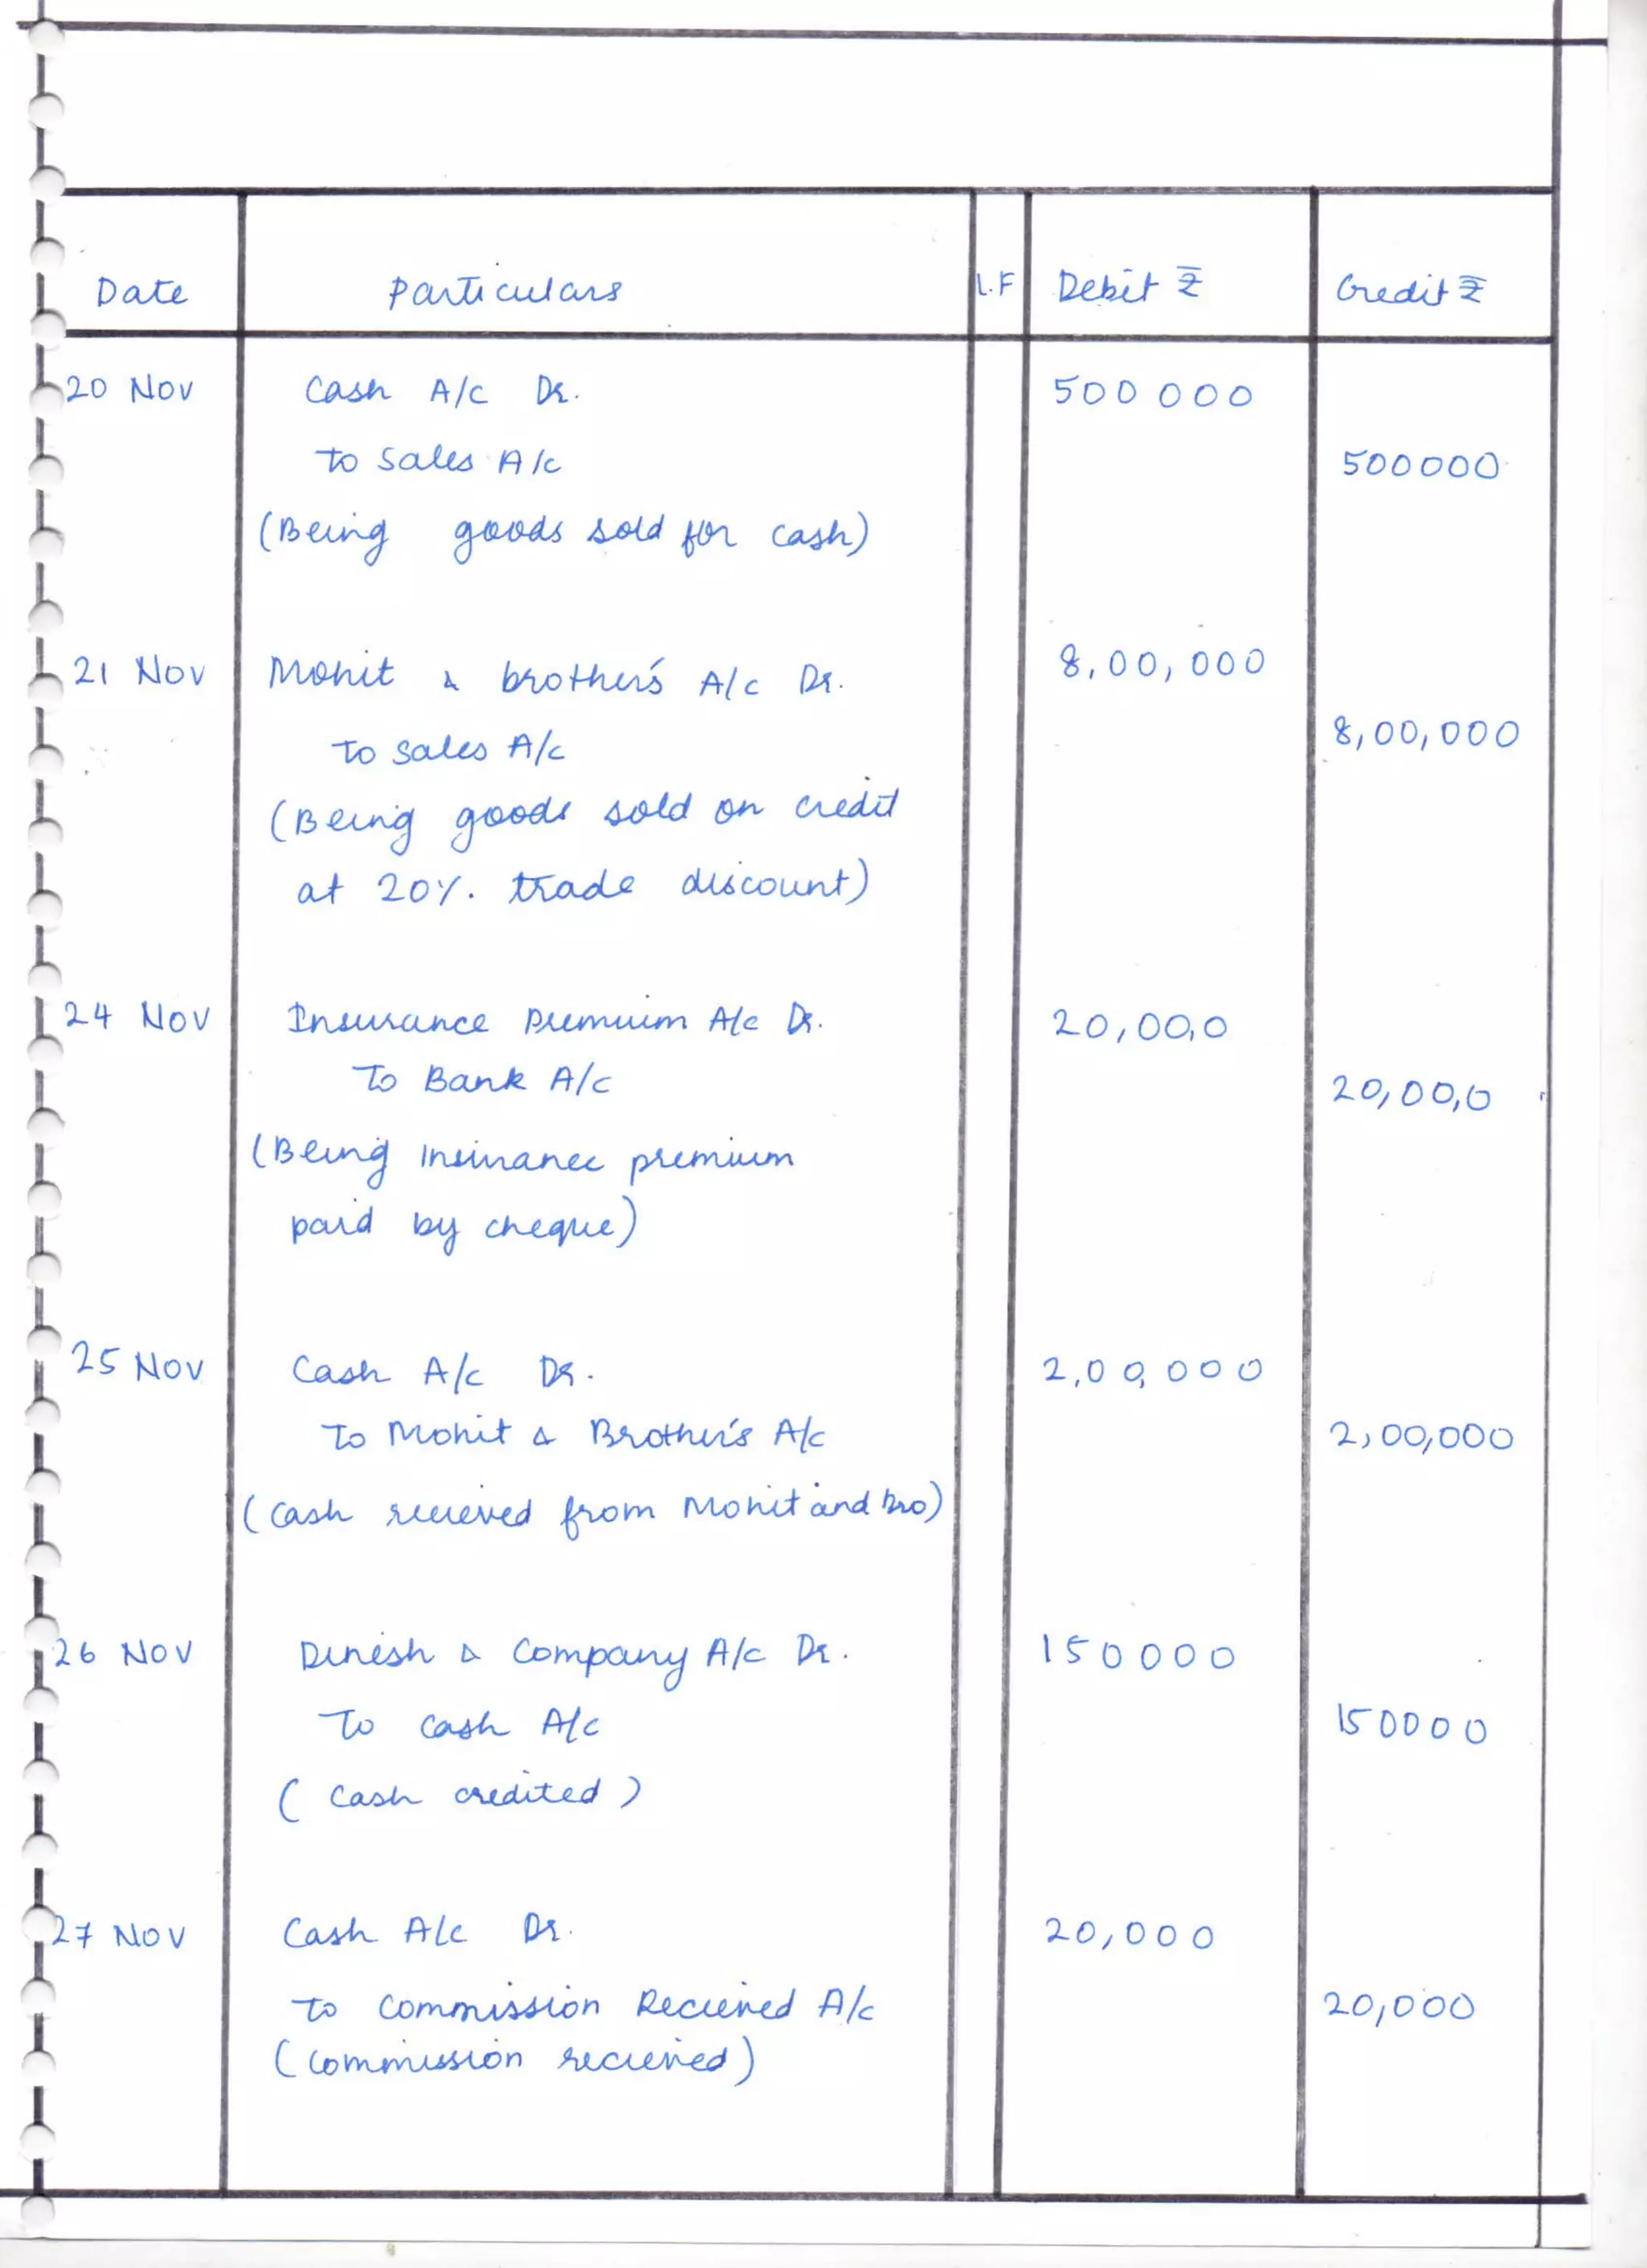 Date Particulars L.F Debit ₹ Credit ₹
20 Nov Cash A/c Dr. 500 000
to Sales A/c 500000
(Being goods sold for cash)
21 Nov Mohit & brother's A/c Dr. 8,00,000
To Sales A/c 8,00,000
(Being goods sold on credit
at 20%. trade discount)
24 Nov Insurance Premium A/c Dr. 20,00,0
To Bank A/c 20,00,0
(Being Insurance premium
paid by cheque)
25 Nov Cash A/c Dr. 2,00,000
To Mohit & Brother's A/c 2,00,000
(Cash recieved from Mohit and bro)
26 Nov Dinesh & Company A/c Dr. 150000
To cash A/c 150000
( Cash credited )
27 Nov Cash A/c Dr. 20,000
to Commission Recieved A/c 20,000
(Commission recieved)